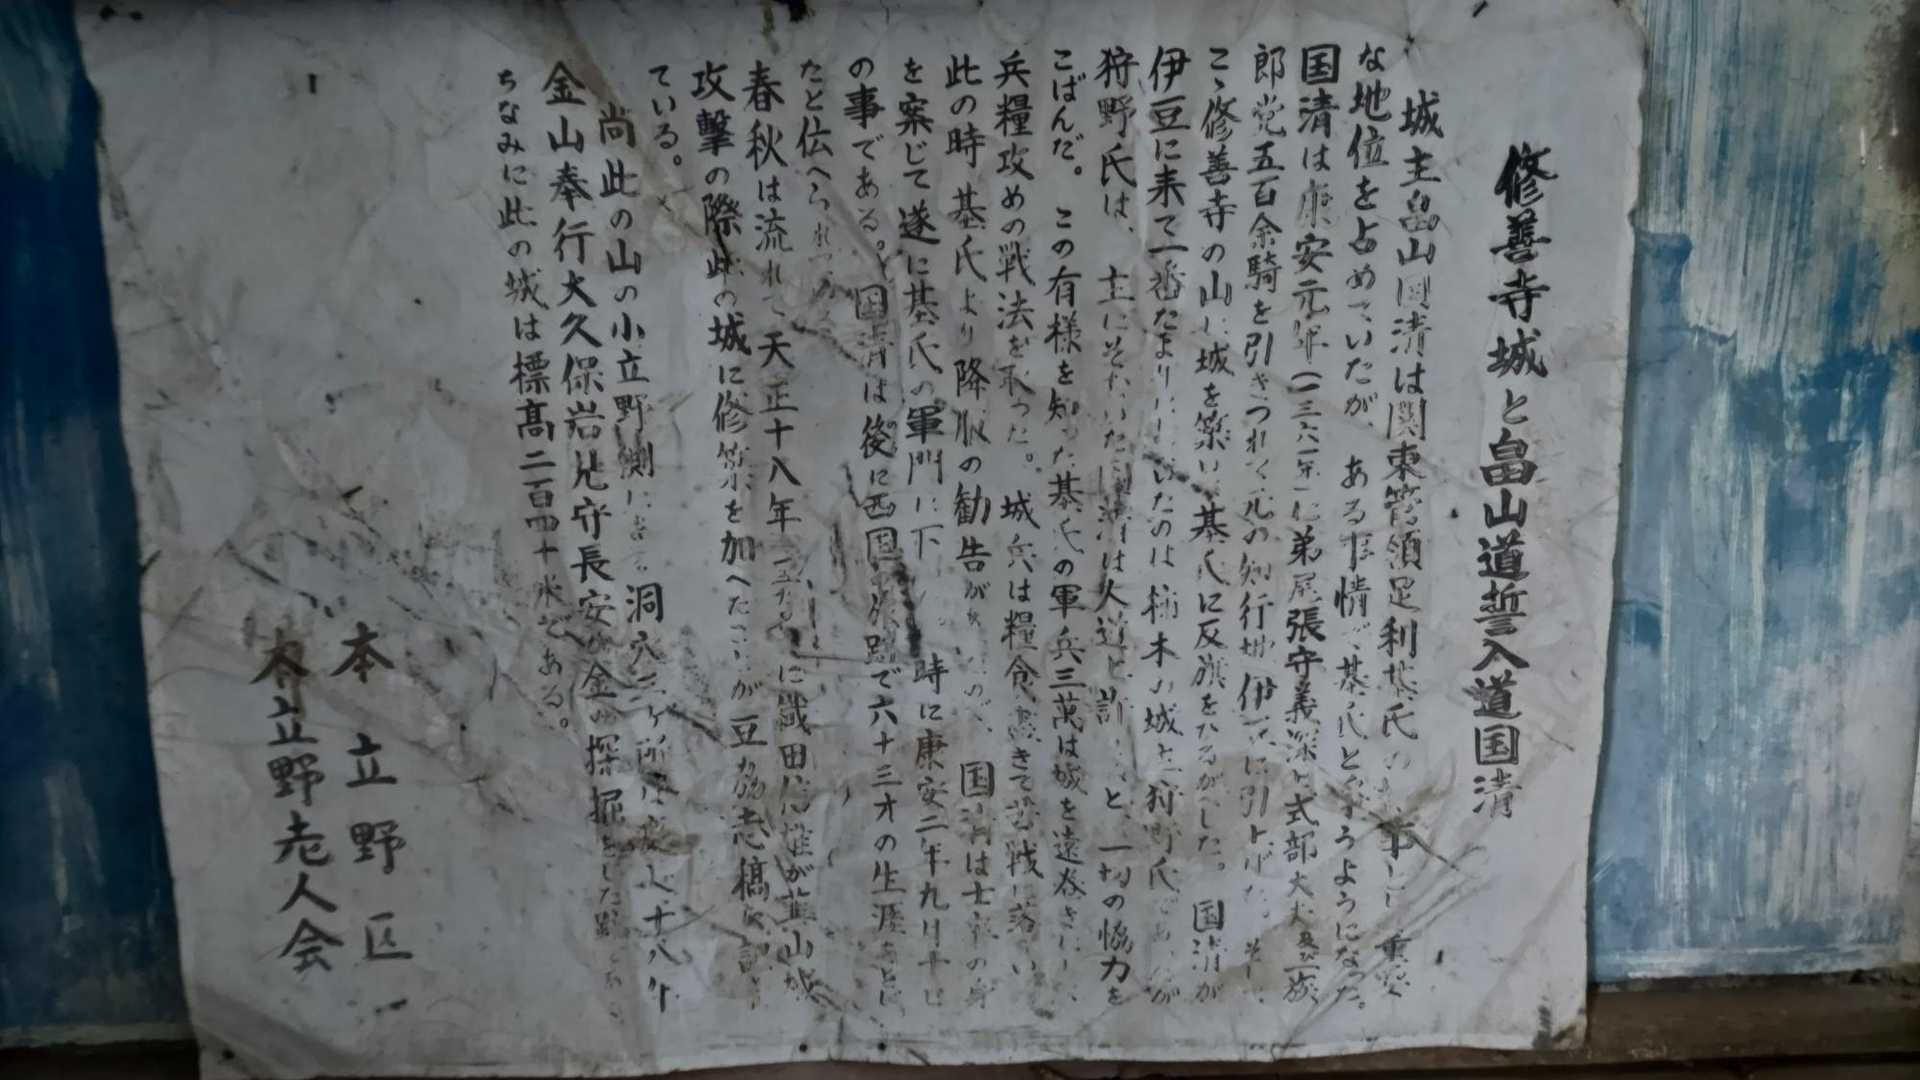 修善寺城と畠山道誓入道国清
城主畠山国清は関東管領足利基氏の 重要
な地位を占めていたが、ある事情で基氏と争うようになった。
国清は康安元年(一三六一年)に弟尾張守義深と式部大夫及び一族
郎党五百余騎を引きつれて元の知行地伊豆に引上げた。そして
こゝ修善寺の山に城を築いて基氏に反旗をひるがえした。国清が
伊豆に来て一番たよりにしていたのは柿木の城主狩野氏であったが
狩野氏は、主にそむいた国清は大逆と 、一切の協力を
こばんだ。この有様を知った基氏の軍兵三萬は城を遠巻きにし、
兵糧攻めの戦法を取った。城兵は糧食盡きて苦戦に落い
此の時基氏より降服の勧告が ので、国清は士卒の身
を案じて遂に基氏の軍門に下 。時に康安二年九月十日
の事である。国清は後に西国の旅路で六十三才の生涯をとじ
たと伝へられている
春秋は流れて天正十八年 に織田信雄が韮山城
攻撃の際此の城に修築を加へたことが豆州志稿に記
ている。
尚此の山の小立野側にある洞穴三ヶ所は慶長十八年
金山奉行大久保岩見守長安が金の採掘をした跡であ
ちなみに此の城は標高二百四十米である。
本立野区
本立野老人会